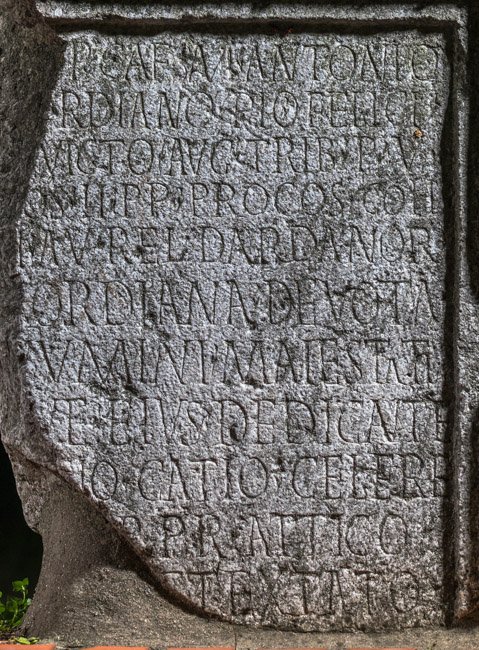 P · CAES · M · ANTONIO
RDIANO · PIO FELICI
VICTO AVG · TRIB · P · V
S · II · PP · PROCOS · COH
AVREL · DARDANOR
ORDIANA DEVOTA
NVMINI MAIESTATI
Æ EIVS DEDICATE
IO CATIO · CELERE
P · R · ATTICO
ET · EXTATO